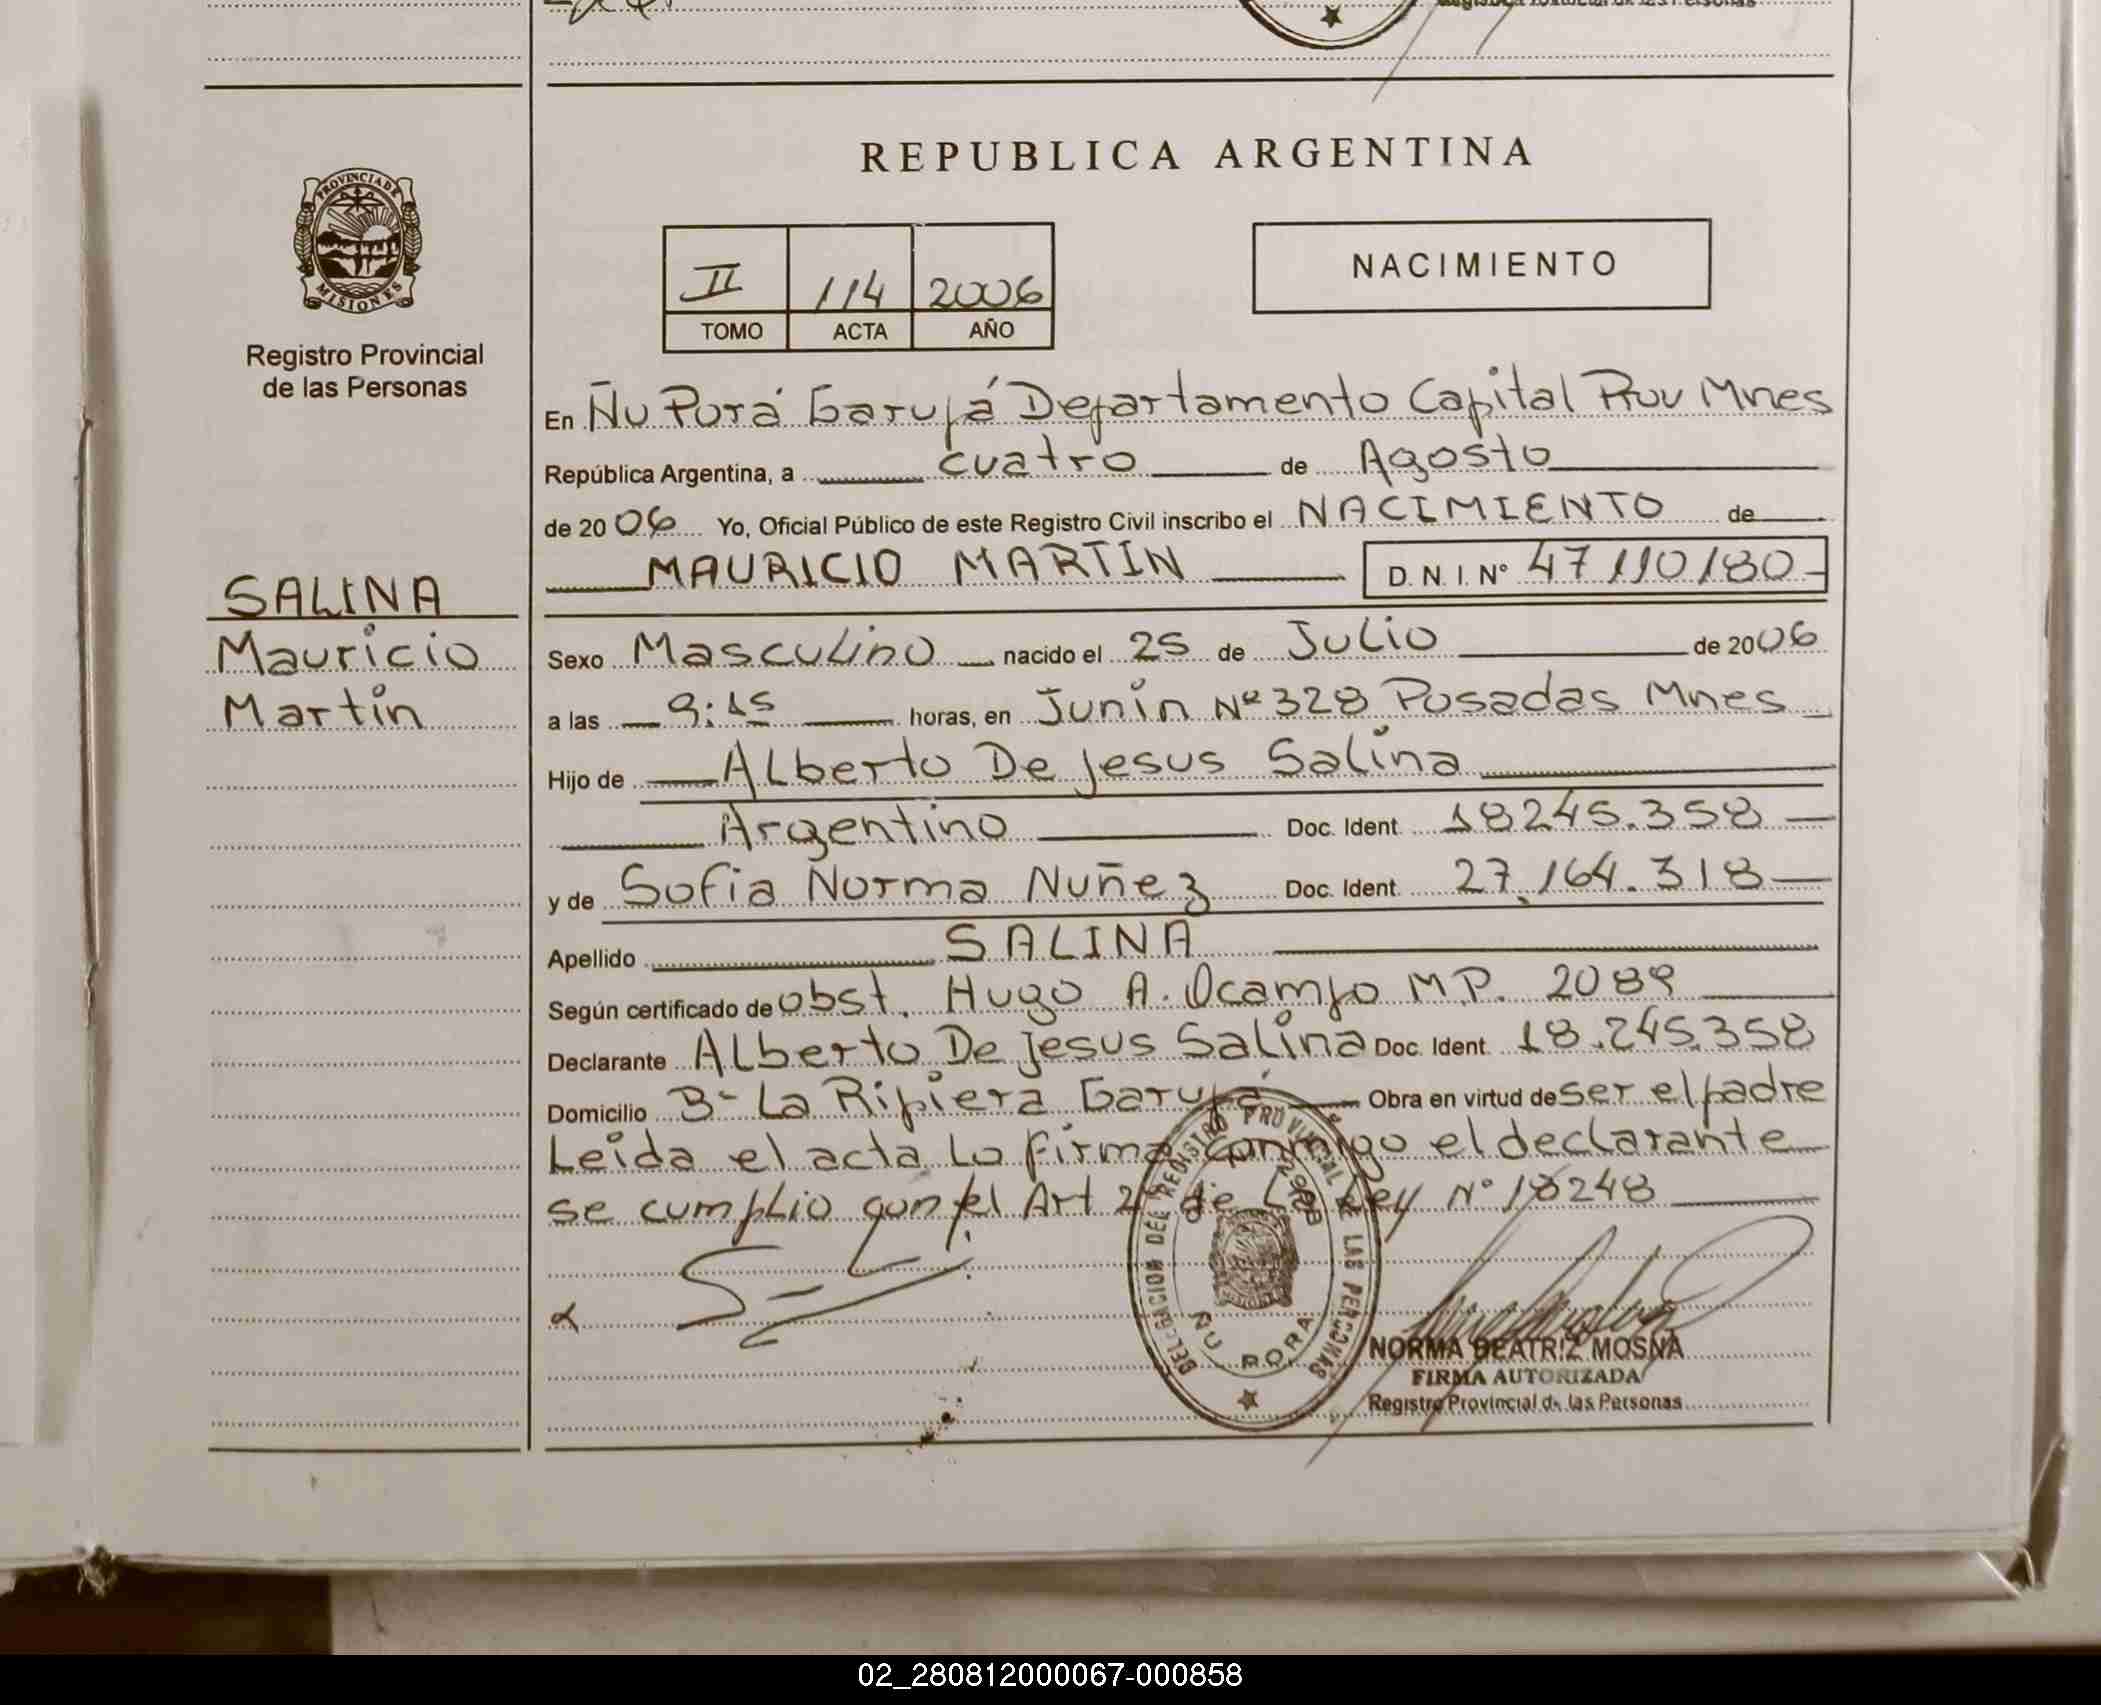 REPUBLICA ARGENTINA
PROVINCIA DE
MISIONES
Registro Provincial
de las Personas
NACIMIENTO
II 114 2006
TOMO ACTA AÑO
En Ñu Porá Garupá Departamento Capital Prov Mnes
República Argentina, a cuatro de Agosto
de 2006 Yo, Oficial Público de este Registro Civil inscribo el NACIMIENTO de
MAURICIO MARTIN D.N.I. Nº 47110180
SALINA
Mauricio
Martin
Sexo Masculino nacido el 25 de Julio de 2006
a las 9:15 horas, en Junin Nº 328 Posadas Mnes
Hijo de Alberto De Jesus Salina
Argentino Doc. Ident. 18245.358
y de Sofia Norma Nuñez Doc. Ident. 27.164.318
Apellido SALINA
Según certificado de obst. Hugo A. Ocampo M.P. 2089
Declarante Alberto De Jesus Salina Doc. Ident. 18.245.358
Domicilio Bº La Ripiera Garupá Obra en virtud de ser el padre
Leida el acta Lo firma conmigo el declarante
se cumplio con el Art 2º de La Ley Nº 18248
DELEGACION DEL REGISTRO PROVINCIAL DE LAS PERSONAS
ÑU PORA
NORMA BEATRIZ MOSNA
FIRMA AUTORIZADA
Registro Provincial de las Personas
02_280812000067-000858